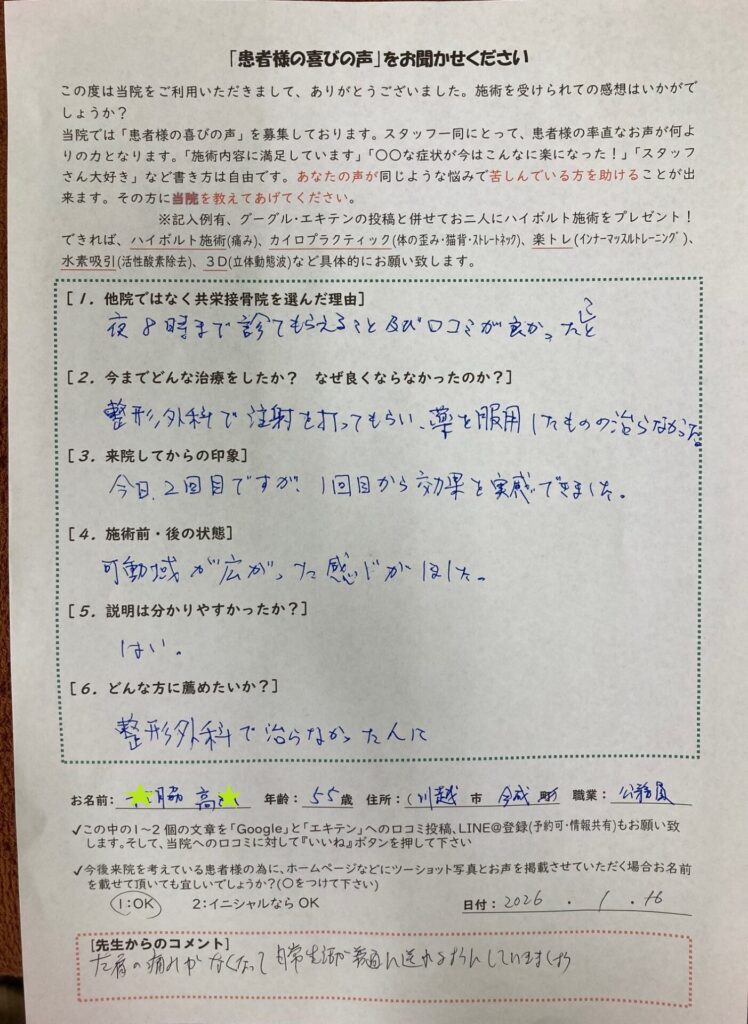 「患者様の喜びの声」をお聞かせください
この度は当院をご利用いただきまして、ありがとうございました。施術を受けられての感想はいかがで
しょうか？
当院では「患者様の喜びの声」を募集しております。スタッフ一同にとって、患者様の率直なお声が何よ
りの力となります。「施術内容に満足しています」「〇〇な症状が今はこんなに楽になった！」「スタッフ
さん大好き」など書き方は自由です。あなたの声が同じような悩みで苦しんでいる方を助けることが出
来ます。その方に当院を教えてあげてください。
※記入例有、グーグル・エキテンの投稿と併せてお二人にハイボルト施術をプレゼント！
できれば、ハイボルト施術(痛み)、カイロプラクティック(体の歪み・猫背・ストレートネック)、楽トレ(インナーマッスルトレーニング)、
水素吸引(活性酸素除去)、３D(立体動態波)など具体的にお願い致します。
[１．他院ではなく共栄接骨院を選んだ理由]
夜８時まで診てもらえること及び口コミが良かったこと
[２．今までどんな治療をしたか？　なぜ良くならなかったのか？]
整形外科で注射を打ってもらい、薬を服用したものの治らなかった。
[３．来院してからの印象]
今日、２回目ですが、１回目から効果を実感できました。
[４．施術前・後の状態]
可動域が広がった感じがしました。
[５．説明は分かりやすかったか？]
はい。
[６．どんな方に薦めたいか？]
整形外科で治らなかった人に
お名前： 脇 高 年齢：５５歳 住所：（川越 市 今成 町） 職業：公務員
✓この中の１～２個の文章を「Google」と「エキテン」への口コミ投稿、LINE@登録(予約可・情報共有)もお願い致
します。そして、当院への口コミに対して『いいね』ボタンを押して下さい
✓今後来院を考えている患者様の為に、ホームページなどにツーショット写真とお声を掲載させていただく場合お名前
を載せて頂いても宜しいでしょうか？(〇をつけて下さい)
１：OK　２：イニシャルなら OK　日付：2026 . 1 . 16
[先生からのコメント]
左肩の痛みがなくなって日常生活が普通に送れる